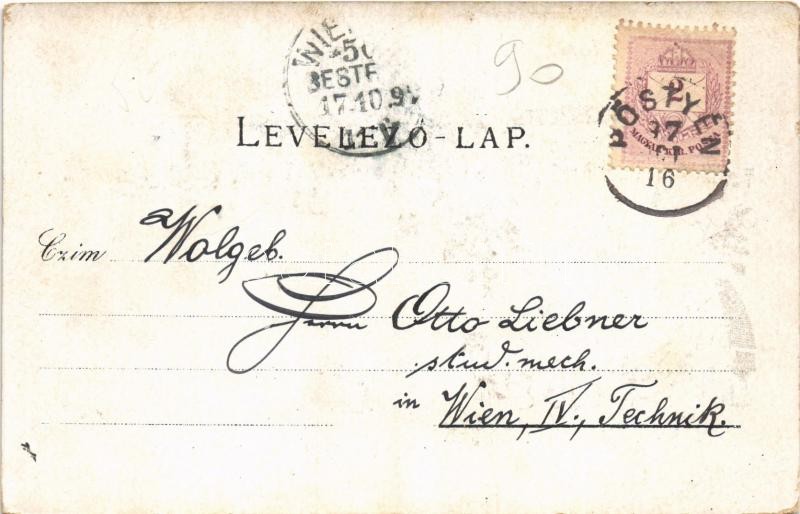 WIEN
50
BESTELLT
17.10.97
90
2
MAGYAR KIR. POSTA
PÖSTYÉN
97
16
LEVELEZŐ-LAP.
Czim Wolgeb.
Herrn Otto Liebner
stud. mech.
in Wien, IV., Technik.